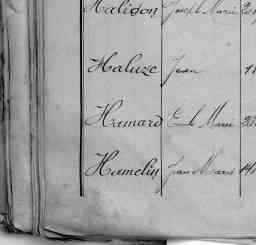 Halidon Joseph Marie
Haluze Jean
Hamard Emile Marie
Hamelin Jean Marie